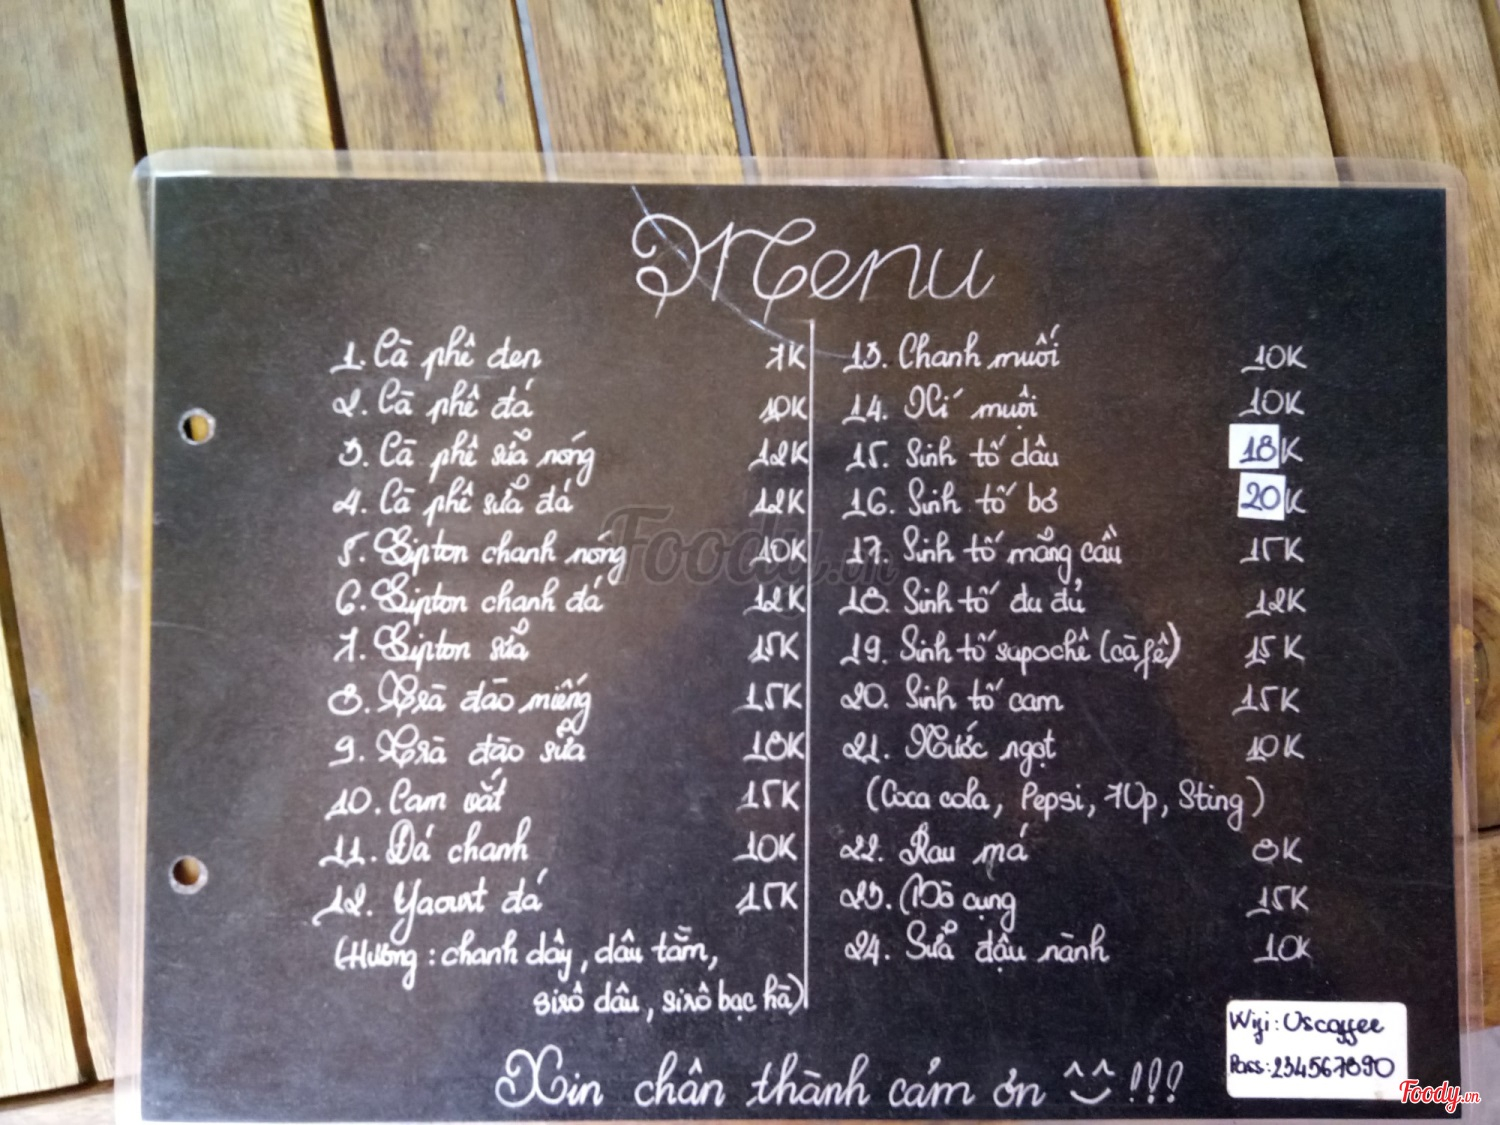 Menu
1. Cà phê đen 7K
2. Cà phê đá 10K
3. Cà phê sữa nóng 12K
4. Cà phê sữa đá 12K
5. Lipton chanh nóng 10K
6. Lipton chanh đá 12K
7. Lipton sữa 15K
8. Trà đào miếng 15K
9. Trà đào sữa 18K
10. Cam vắt 15K
11. Đá chanh 10K
12. Yaourt đá 15K
(Hương : chanh dây, dâu tằm,
sirô dâu, sirô bạc hà)
13. Chanh muối 10K
14. Xí muội 10K
15. Sinh tố dâu 18K
16. Sinh tố bơ 20K
17. Sinh tố mãng cầu 15K
18. Sinh tố đu đủ 12K
19. Sinh tố sapochê (cà fê) 15K
20. Sinh tố cam 15K
21. Nước ngọt 10K
(Coca cola, Pepsi, 7Up, Sting)
22. Rau má 8K
23. Bò cụng 15K
24. Sữa đậu nành 10K
Xin chân thành cảm ơn ^^ !!!
Wifi : Uscoffee
Pass : 234567890
Foody.vn
Foody.vn